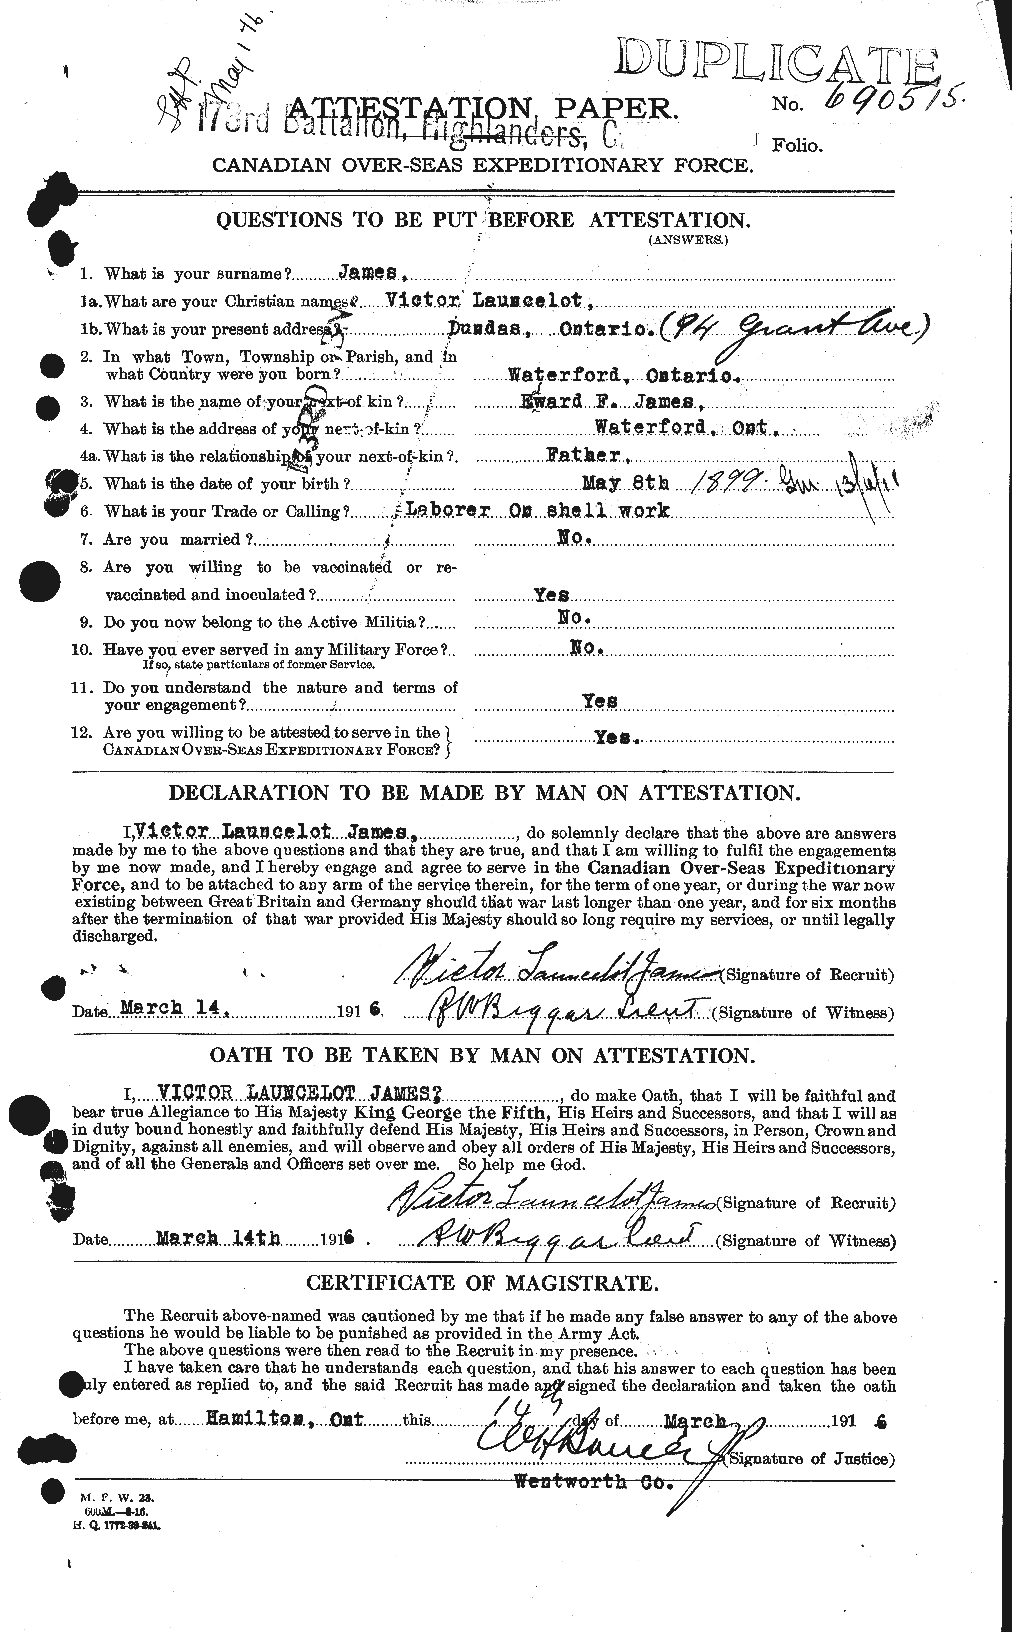 May 1 16
DUPLICATE
ATTESTATION PAPER.
No. 690515.
173rd Battalion, Highlanders, C.
Folio.
CANADIAN OVER-SEAS EXPEDITIONARY FORCE.
QUESTIONS TO BE PUT BEFORE ATTESTATION.
(ANSWERS.)
1. What is your surname? James,
1a. What are your Christian names? Victor Launcelot,
1b. What is your present address? Dundas, Ontario. (94 Grant Ave)
2. In what Town, Township or Parish, and in
what Country were you born? Waterford, Ontario.
3. What is the name of your next-of kin? Eward F. James,
4. What is the address of your next-of-kin? Waterford, Ont.
4a. What is the relationship of your next-of-kin? Father,
5. What is the date of your birth? May 8th 1899.
6. What is your Trade or Calling? Laborer On shell work
7. Are you married? No.
8. Are you willing to be vaccinated or re-
vaccinated and inoculated? Yes
9. Do you now belong to the Active Militia? No.
10. Have you ever served in any Military Force? No.
If so, state particulars of former Service.
11. Do you understand the nature and terms of
your engagement? Yes
12. Are you willing to be attested to serve in the
CANADIAN OVER-SEAS EXPEDITIONARY FORCE? Yes.
DECLARATION TO BE MADE BY MAN ON ATTESTATION.
I, Victor Launcelot James, do solemnly declare that the above are answers
made by me to the above questions and that they are true, and that I am willing to fulfil the engagements
by me now made, and I hereby engage and agree to serve in the Canadian Over-Seas Expeditionary
Force, and to be attached to any arm of the service therein, for the term of one year, or during the war now
existing between Great Britain and Germany should that war last longer than one year, and for six months
after the termination of that war provided His Majesty should so long require my services, or until legally
discharged.
Victor Launcelot James (Signature of Recruit)
Date March 14, 1916. R W Biggar Lieut (Signature of Witness)
OATH TO BE TAKEN BY MAN ON ATTESTATION.
I, VICTOR LAUNCELOT JAMES?, do make Oath, that I will be faithful and
bear true Allegiance to His Majesty King George the Fifth, His Heirs and Successors, and that I will as
in duty bound honestly and faithfully defend His Majesty, His Heirs and Successors, in Person, Crown and
Dignity, against all enemies, and will observe and obey all orders of His Majesty, His Heirs and Successors,
and of all the Generals and Officers set over me. So help me God.
Victor Launcelot James (Signature of Recruit)
Date March 14th 1916. R W Biggar Lieut (Signature of Witness)
CERTIFICATE OF MAGISTRATE.
The Recruit above-named was cautioned by me that if he made any false answer to any of the above
questions he would be liable to be punished as provided in the Army Act.
The above questions were then read to the Recruit in my presence.
I have taken care that he understands each question, and that his answer to each question has been
duly entered as replied to, and the said Recruit has made and signed the declaration and taken the oath
before me, at Hamilton, Ont this 14th day of March 1916
JP (Signature of Justice)
Wentworth Co.
M. F. W. 23.
600M.—2-16.
H. Q. 1772-39-841.